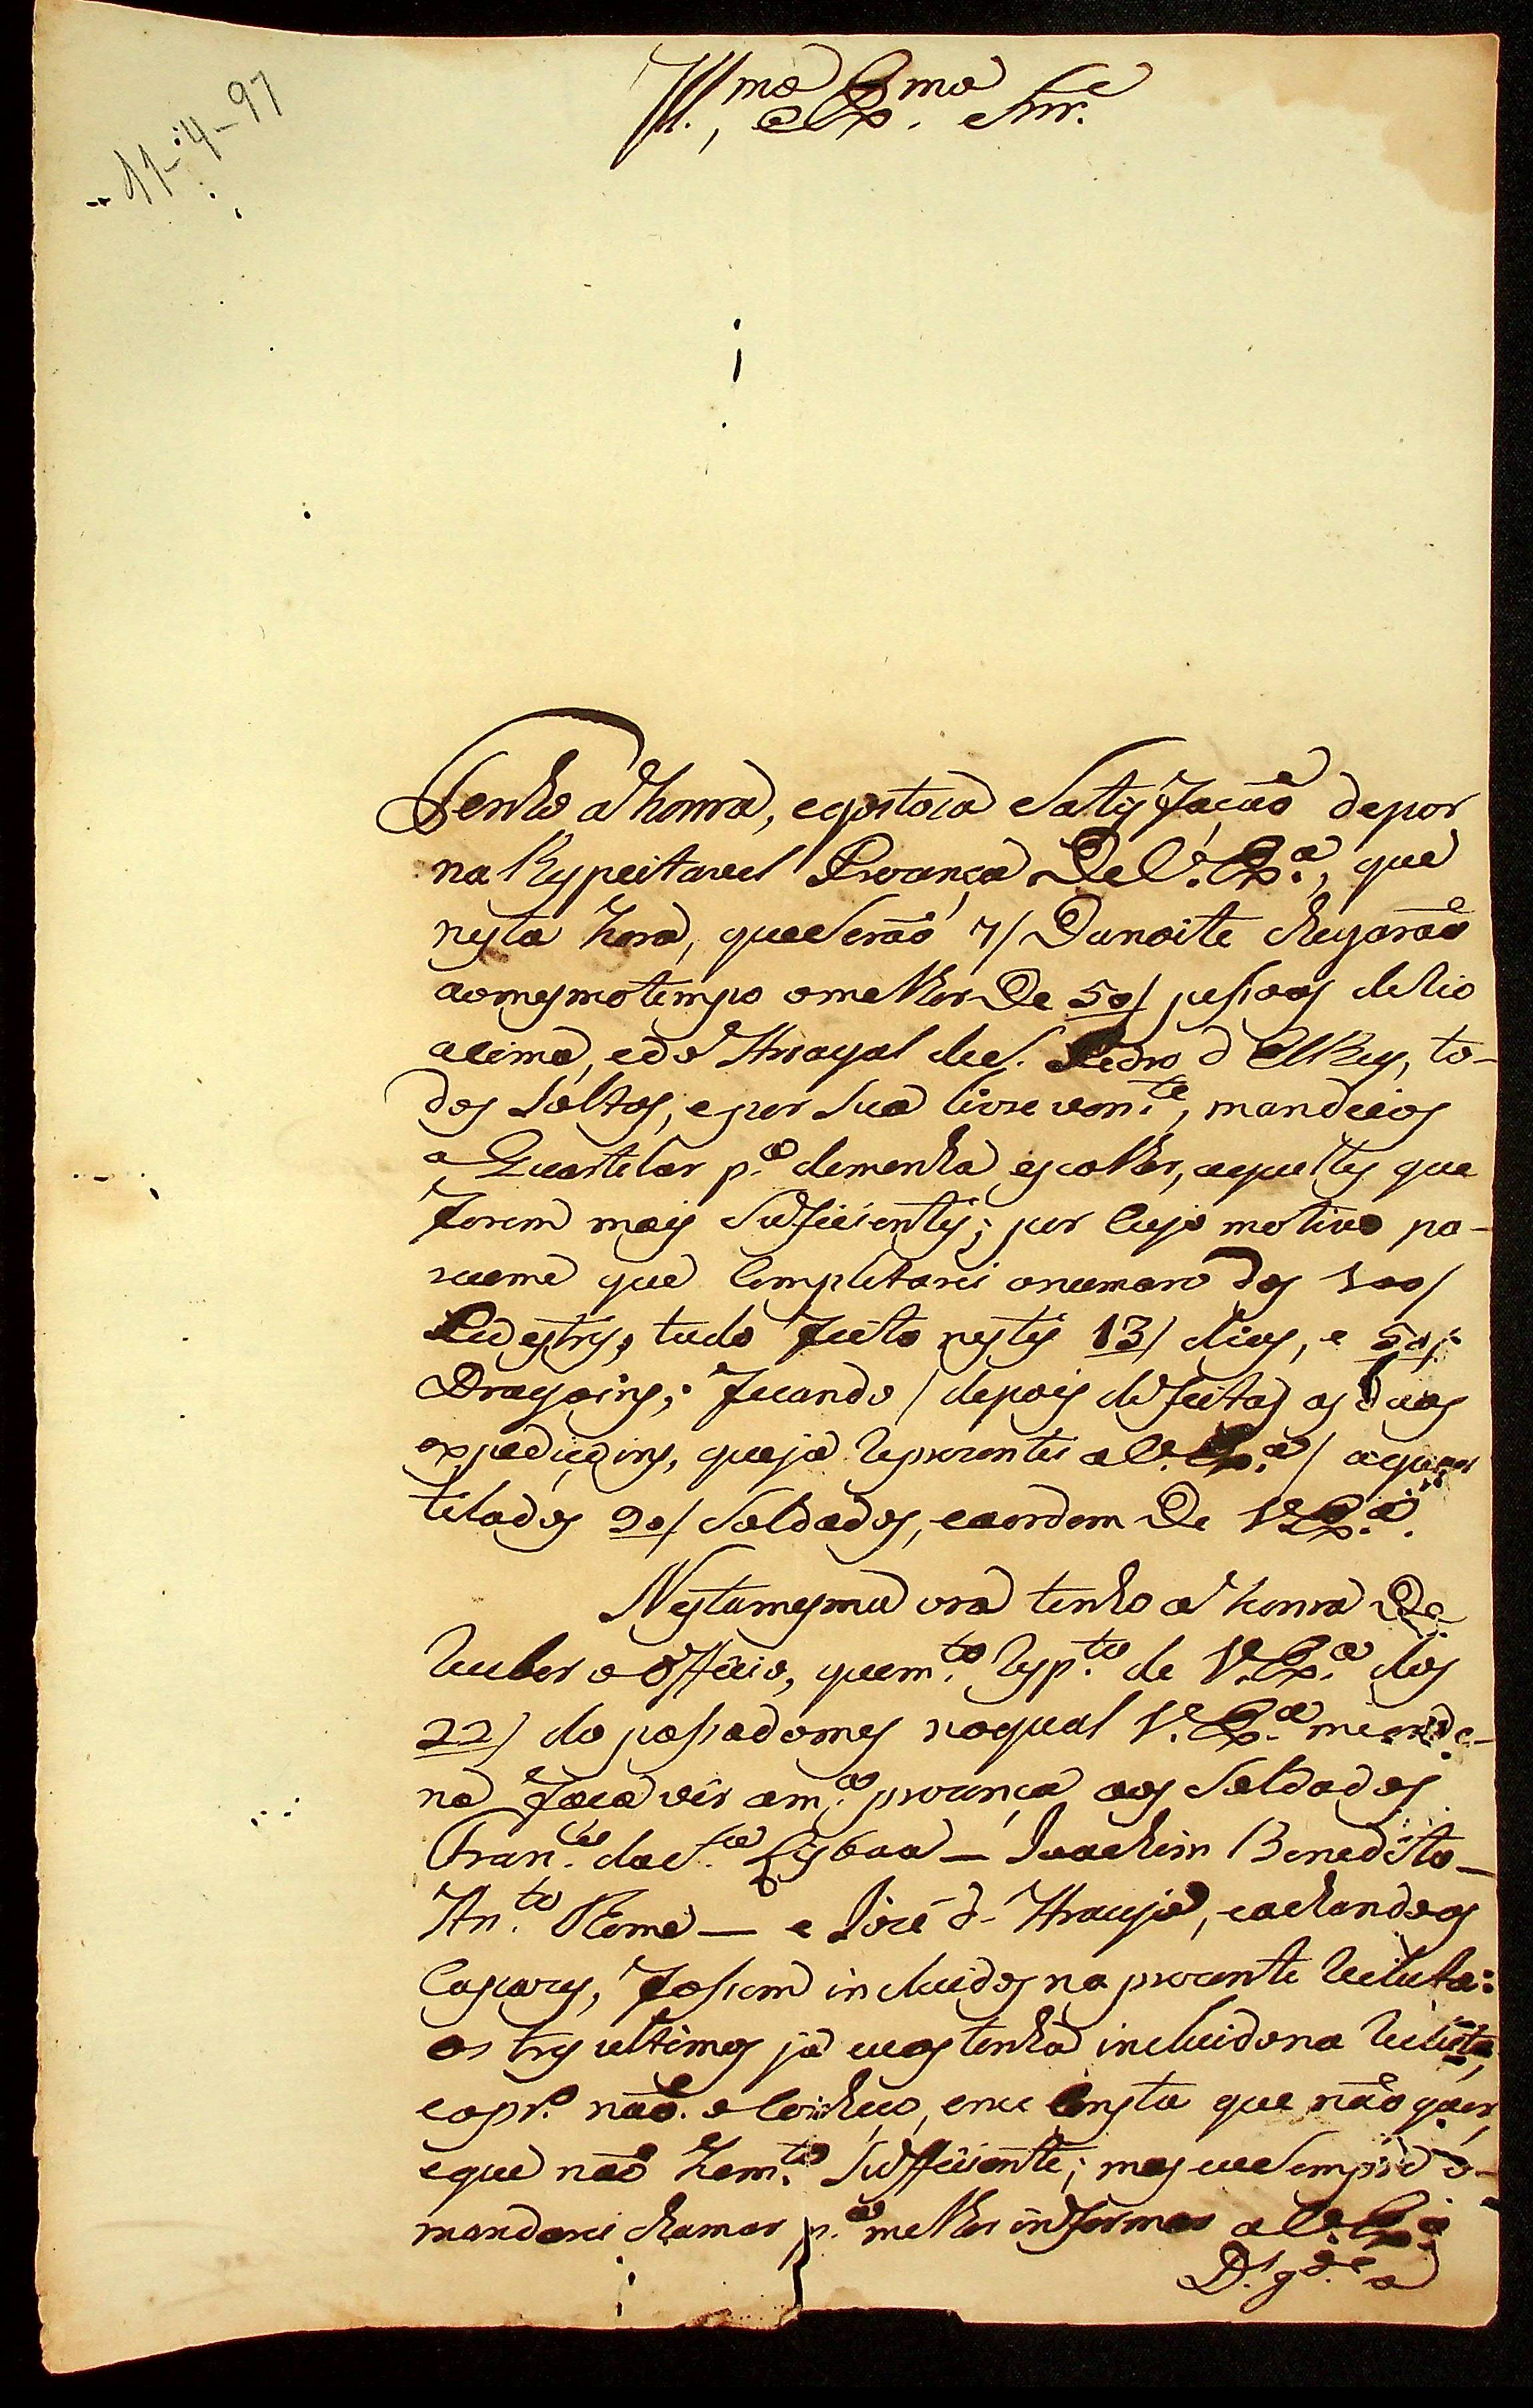 11-4-97
Ill.mo Ex.mo Snr.e
Tenho a honra, egostoza Satisfacaõ depor
na Respeitavel Prezança De V. Ex.a, que
nesta hora, queseraõ 7/ Danoite chegaraõ
aomesmotempo omelhor De 50/ pessoas do Rio
acima, edo Arrayal de S. Pedro d ElRey, to-
dos Soltos, epor Sua livre von.te, mandeios
a Quartelar p.a demenha escolher, aquelles que
forem mais Sufficientes; por Cujo motivo pa-
receme que Completarei onumaro dos 100/
Pedestres, tudo feito nestes 13/ dias, e 50/
Dragoins; ficando / depois de feitas as duas
expadiçoins, queja Reprezentei a V. Ex.a / aquar
telados 20/ Soldados, eaordem De V. Ex.a.
Nestamesma ora tenho a honra De
Receber o Officio, quem.to Resp.to de V. Ex.a dos
22/ do passadomes noqual V. Ex.a meorde-
na faça vir am.a prezança aos Soldados
Fran.co da S.a Lisboa — Joachim Benedito —
An.to Rome — e José d. Araujo, eachandoos
Capazes, fossem incluidos na prezente Recluta:
os tres ultimos ja euos tenho incluidona Recluta,
eopr.o naõ o Conheço, eme Consta que naõ quer,
eque naõ hem.to Sufficiente; mas euSempre o
mandarei chamar p.a melhor informar a V. Ex.a
D.s g.de a